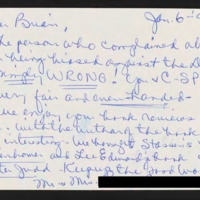 Brian, Jan. 6-'9
he person who complained ab
being biased against the D
WRONG! You & C-SP
very fair and even-handed.
we enjoy your book reviews
with the author of the book
interesting. We bought Stassen's
and Lee Edwards book
Judd. Keep up the good wor